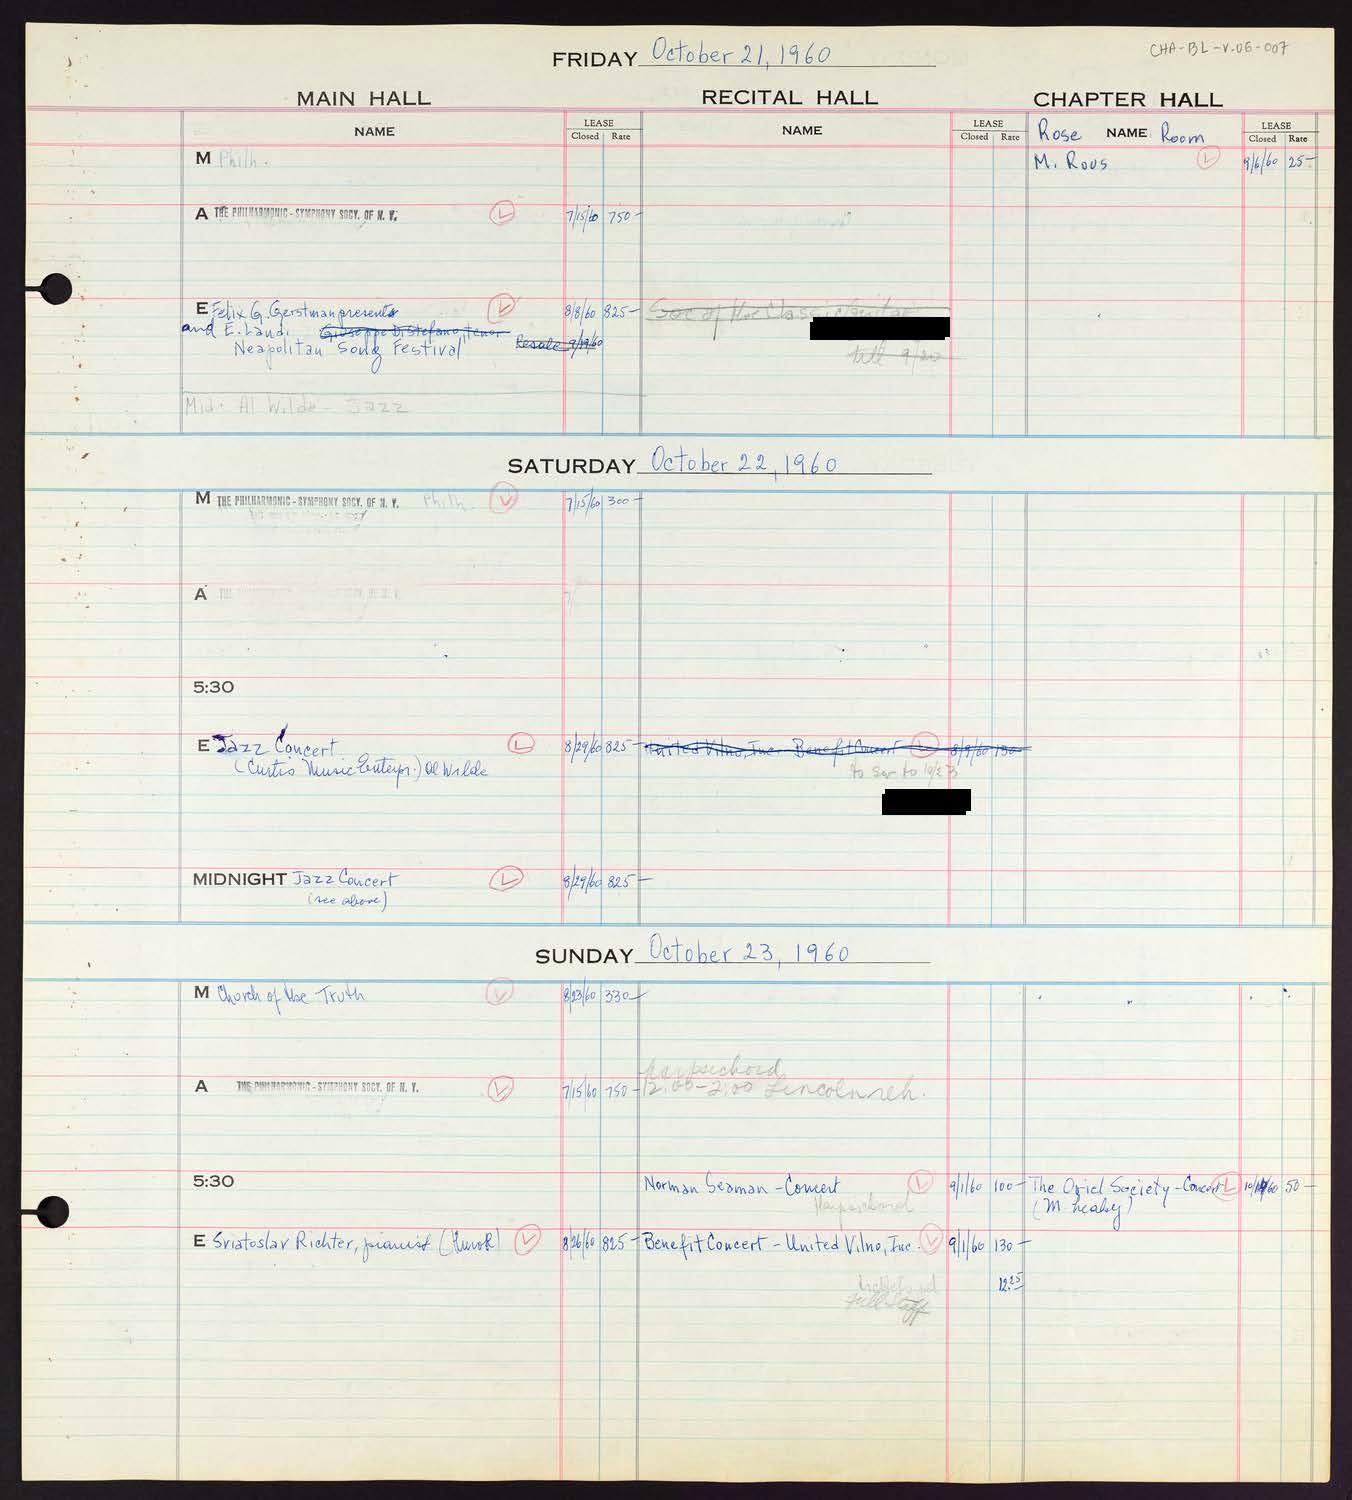 CHA-BL-V.06-007
FRIDAY October 21, 1960
MAIN HALL RECITAL HALL CHAPTER HALL
NAME LEASE Closed Rate NAME LEASE Closed Rate Rose NAME Room LEASE Closed Rate
M Philh. M. Rous L 9/6/60 25-
A THE PHILHARMONIC-SYMPHONY SOCY. OF N. Y. L 7/15/60 750-
E Felix G. Gerstman presents L 8/8/60 825- Soc of the Classic Guitar
and E. Landi Giuseppe Di Stefano, tenor
Neapolitan Song Festival Resale 9/19/60
till 9/20
Mid. Al Wilde - Jazz
SATURDAY October 22, 1960
M THE PHILHARMONIC-SYMPHONY SOCY. OF N. Y. Philh. L 7/15/60 300-
A THE OF N. Y.
5:30
E Jazz Concert L 8/29/60 825- United Vilno, Inc. Benefit Concert L 8/9/60 130-
(Curtis Music Enterpr.) Al Wilde to 10/23
MIDNIGHT Jazz Concert L 8/29/60 825-
(see above)
SUNDAY October 23, 1960
M Church of the Truth L 8/23/60 330-
harpsichord
A THE PHILHARMONIC-SYMPHONY SOCY. OF N. Y. L 7/15/60 750- 12:00-2:00 Lincoln reh.
5:30 Norman Seaman - Concert L 9/1/60 100- The Oriel Society - Concert L 50-
Harpsichord (M. Leahy)
E Sviatoslav Richter, pianist (Hurok) L 8/26/60 825- Benefit Concert - United Vilno, Inc. L 9/1/60 130-
12.25
full staff